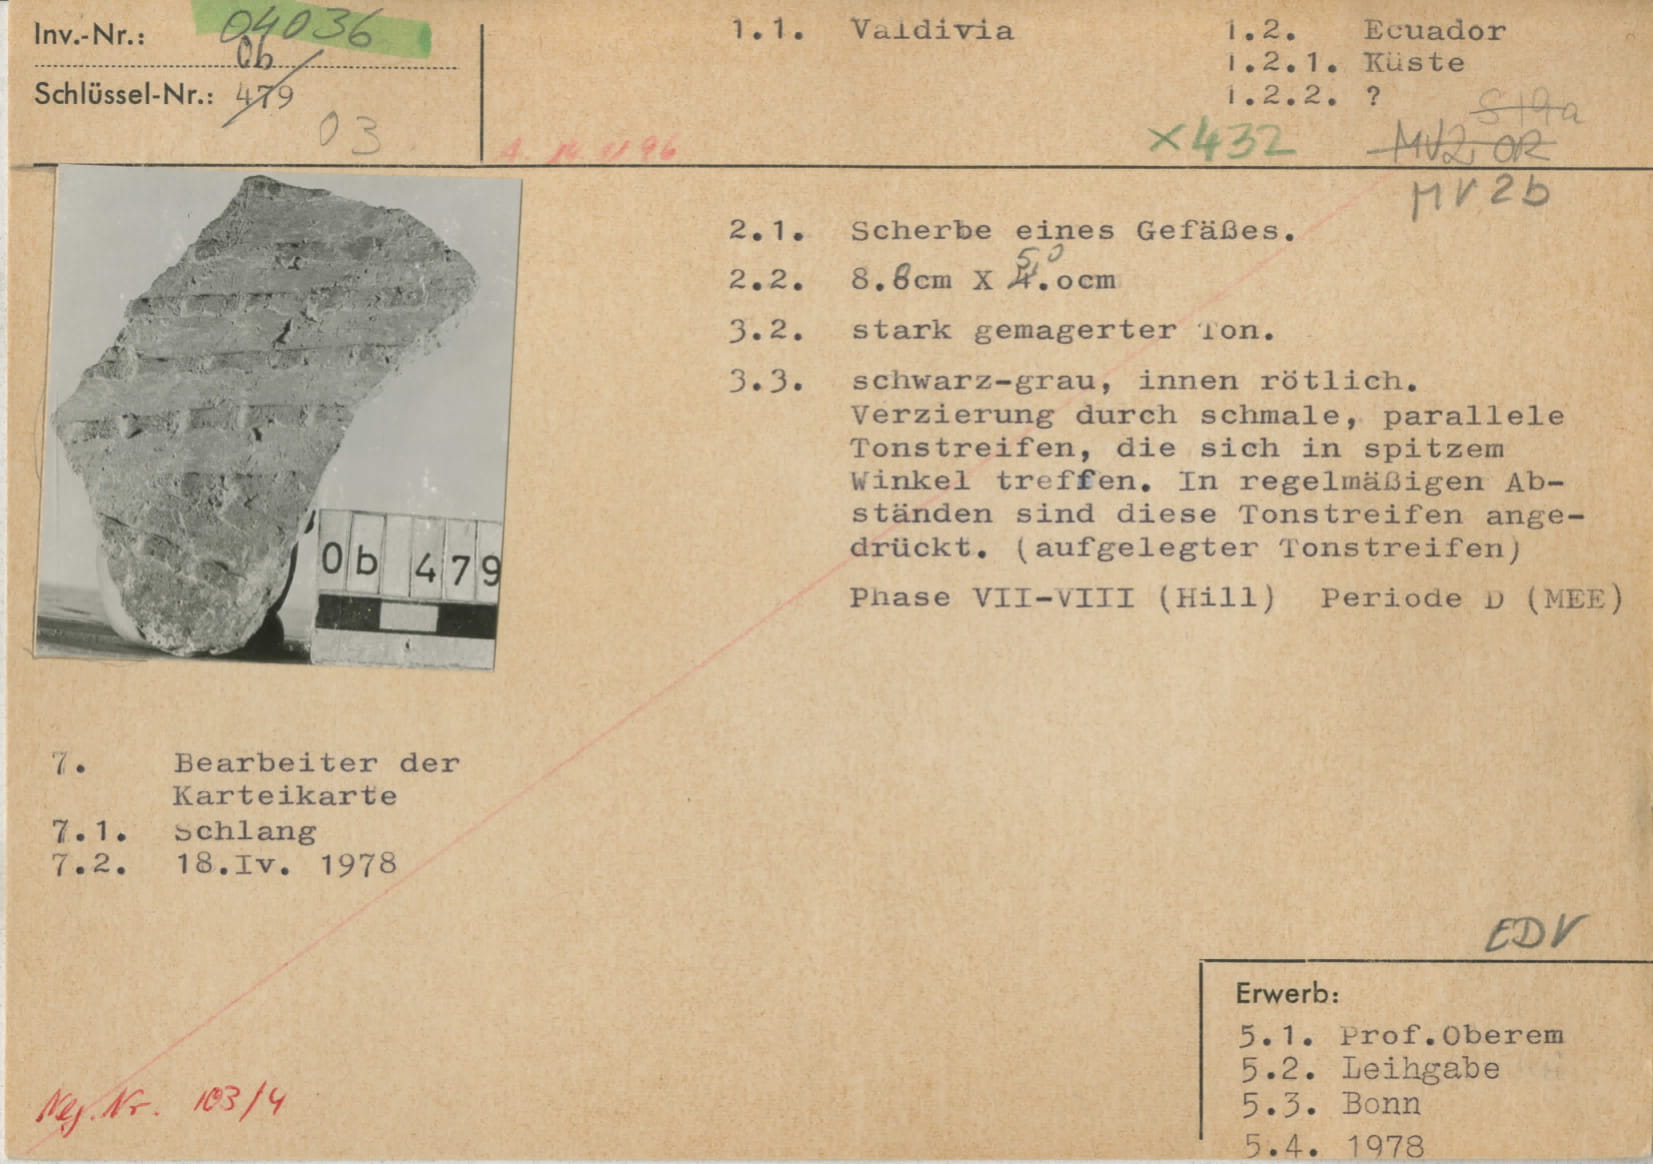 Inv.-Nr.: 04036
Ob
Schlüssel-Nr.: 479
03
1.1. Valdivia
1.2. Ecuador
1.2.1. Küste
1.2.2. ?
S19a
X432
MV2 OR
MV 2b
2.1. Scherbe eines Gefäßes.
5,0
2.2. 8.6cm X 4.ocm
3.2. stark gemagerter Ton.
3.3. schwarz-grau, innen rötlich.
Verzierung durch schmale, parallele
Tonstreifen, die sich in spitzem
Winkel treffen. In regelmäßigen Ab-
ständen sind diese Tonstreifen ange-
drückt. (aufgelegter Tonstreifen)
Phase VII-VIII (Hill) Periode D (MEE)
Ob 479
7. Bearbeiter der
Karteikarte
7.1. Schlang
7.2. 18.Iv. 1978
Neg. Nr. 103/4
EDV
Erwerb:
5.1. Prof.Oberem
5.2. Leihgabe
5.3. Bonn
5.4. 1978